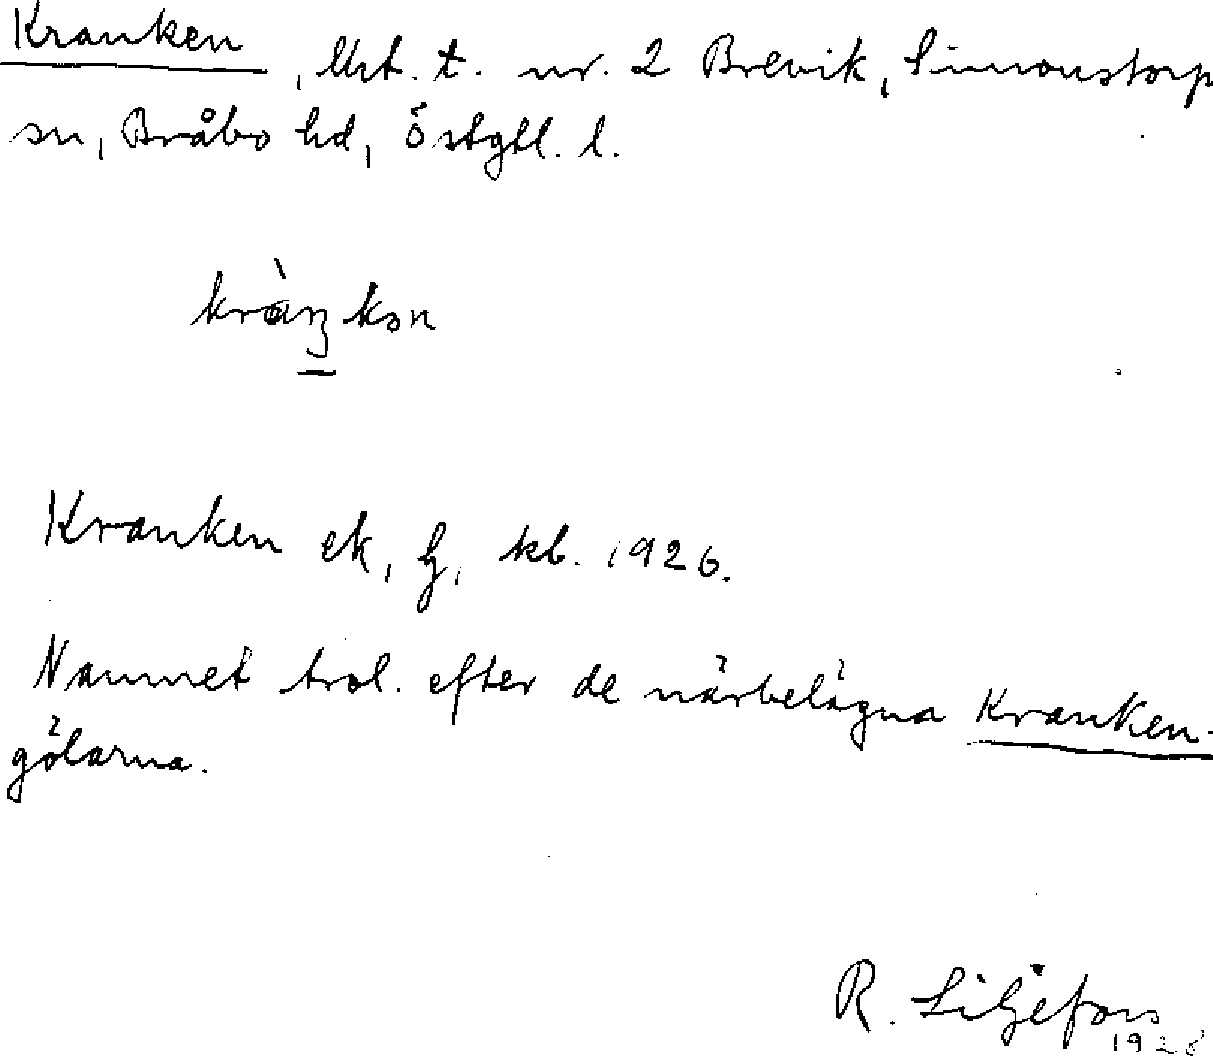 Kranken, Urt. t. nr. 2 Brevik, Simonstorp
sn, Bråbo hd, Östgtl. l.
kràŋkən
Kranken ek, G, kb. 1926.
Namnet trol. efter de närbelägna Kranken-
gölarna.
R. Liljefors
1928